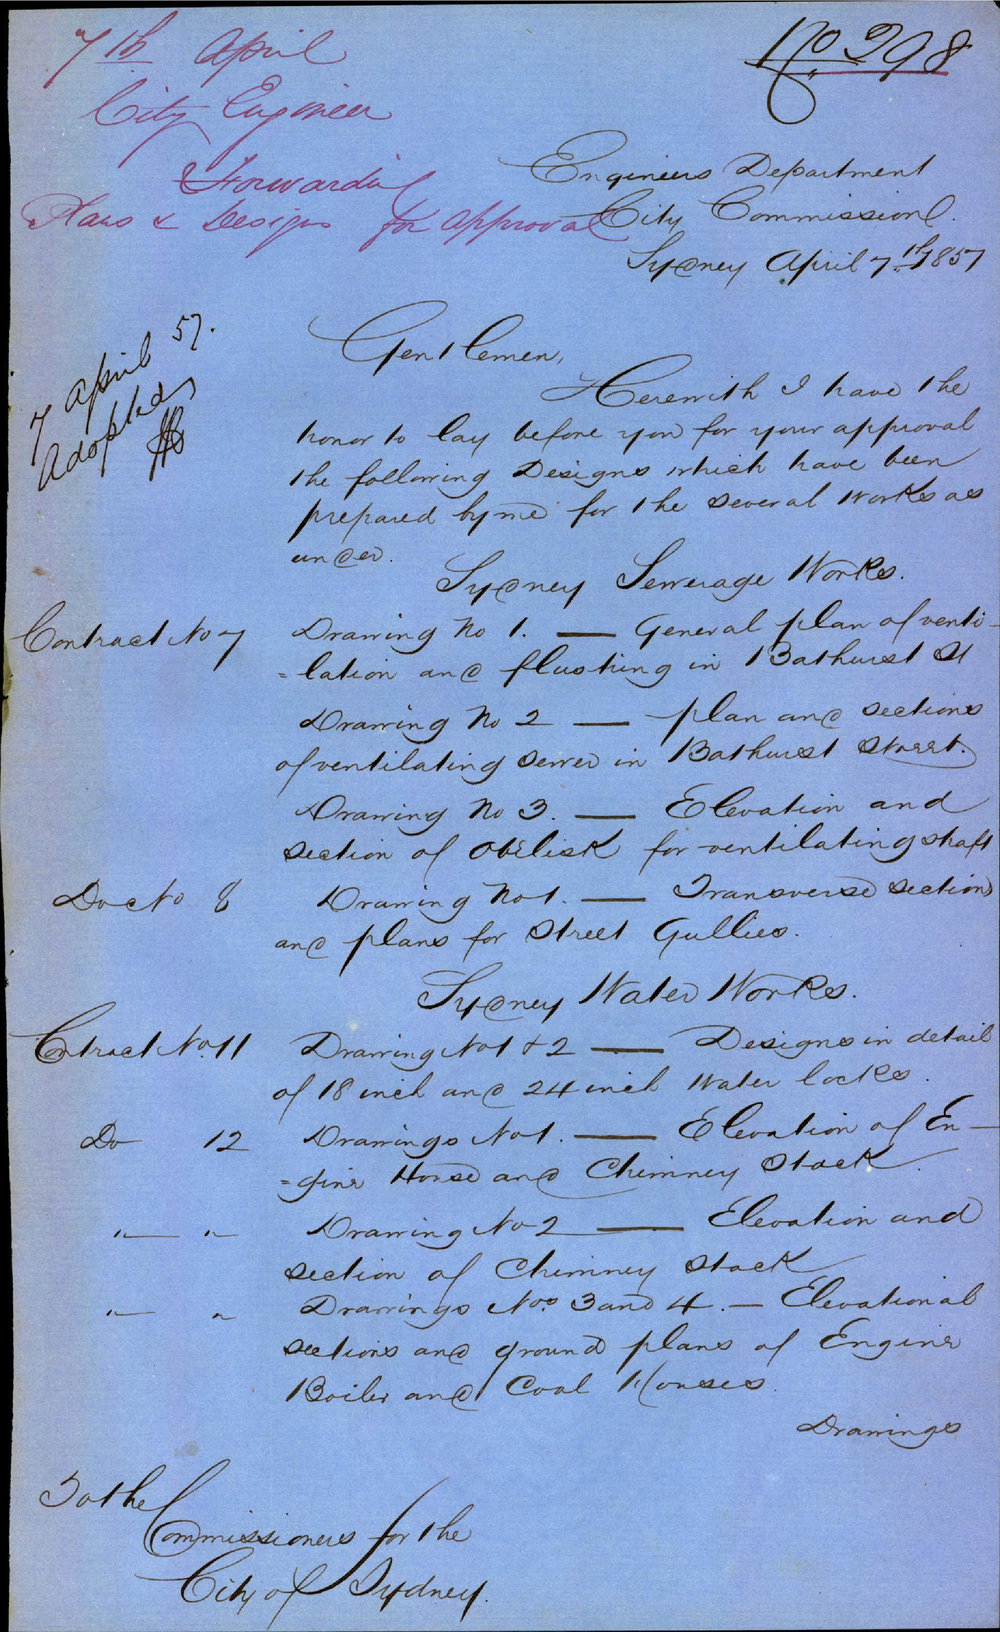 No 298
7th April
City Engineer
Forwarding
Plans & Designs for approval
Engineers Department
City Commission.
Sydney April 7th 1857
7 April 57.
Adopted
Gentlemen,
Herewith I have the
honor to lay before you for your approval
the following Designs which have been
prepared by me for the several Works as
under.
Sydney Sewerage Works.
Contract No 7 Drawing No 1. — General plan of venti-
=lation and flushing in Bathurst St
Drawing No 2 — plan and sections
of ventilating sewer in Bathurst Street.
Drawing No 3. — Elevation and
section of Obelisk for ventilating shaft
Do No 8 Drawing No 1. — Transverse sections
and plans for Street Gullies.
Sydney Water Works.
Contract No. 11 Drawing No 1 & 2 — Designs in detail
of 18 inch and 24 inch Water locks.
Do 12 Drawings No 1. — Elevation of En-
=gine House and Chimney Stack.
" " Drawing No 2 — Elevation and
section of Chimney Stack
" " Drawings Nos. 3 and 4. — Elevational
sections and ground plans of Engine
Boiler and Coal Houses.
Drawings
To the
Commissioners for the
City of Sydney.